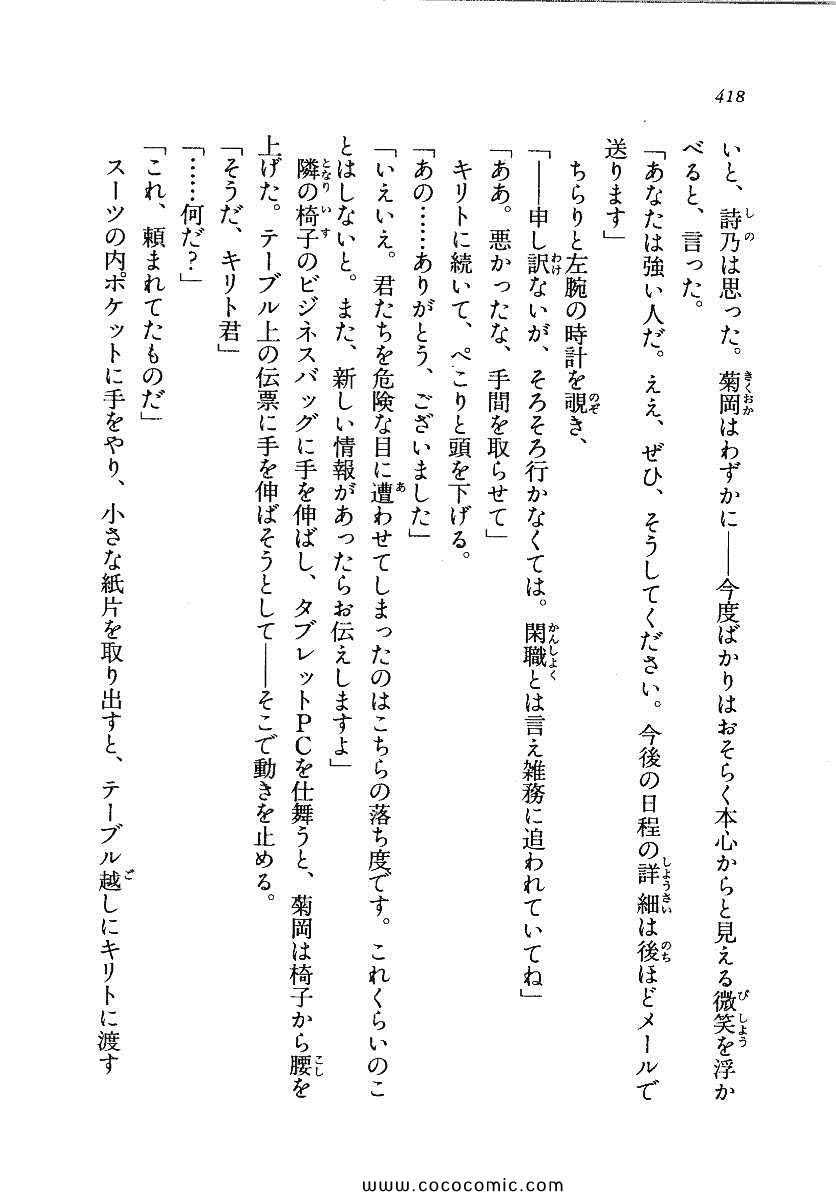 418
いと、詩乃は思った。菊岡はわずかに――今度ばかりはおそらく本心からと見える微笑を浮か
べると、言った。
「あなたは強い人だ。ええ、ぜひ、そうしてください。今後の日程の詳細は後ほどメールで
送ります」
ちらりと左腕の時計を覗き、
「――申し訳ないが、そろそろ行かなくては。閑職とは言え雑務に追われていてね」
「ああ。悪かったな、手間を取らせて」
キリトに続いて、ぺこりと頭を下げる。
「あの……ありがとう、ございました」
「いえいえ。君たちを危険な目に遭わせてしまったのはこちらの落ち度です。これくらいのこ
とはしないと。また、新しい情報があったらお伝えしますよ」
隣の椅子のビジネスバッグに手を伸ばし、タブレットPCを仕舞うと、菊岡は椅子から腰を
上げた。テーブル上の伝票に手を伸ばそうとして――そこで動きを止める。
「そうだ、キリト君」
「……何だ？」
「これ、頼まれてたものだ」
スーツの内ポケットに手をやり、小さな紙片を取り出すと、テーブル越しにキリトに渡す
www.cococomic.com